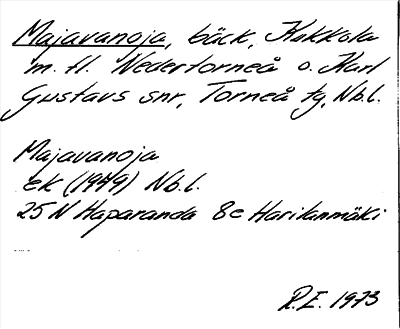 Majavanoja, bäck, Kukkola
m. fl. Nedertorneå o. Karl
Gustavs snr, Torneå tg, Nb.l.
Majavanoja
ek (1949) Nb.l.
25 N Haparanda 8e Haritanmäki
R.E. 1973